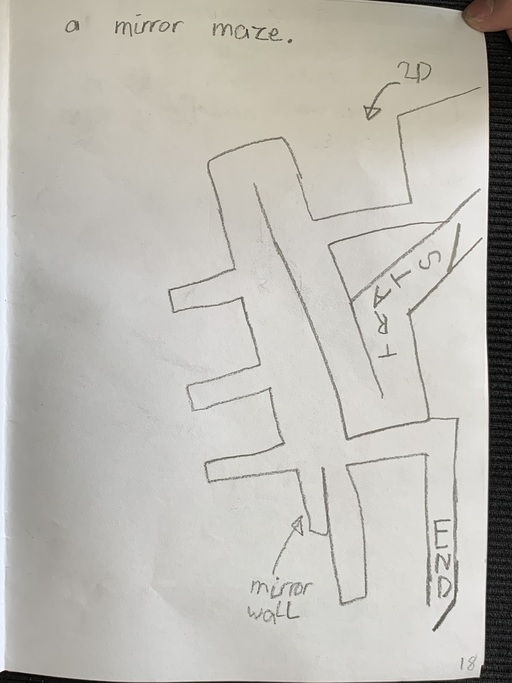 a mirror maze.
2D
START
END
mirror
wall
18